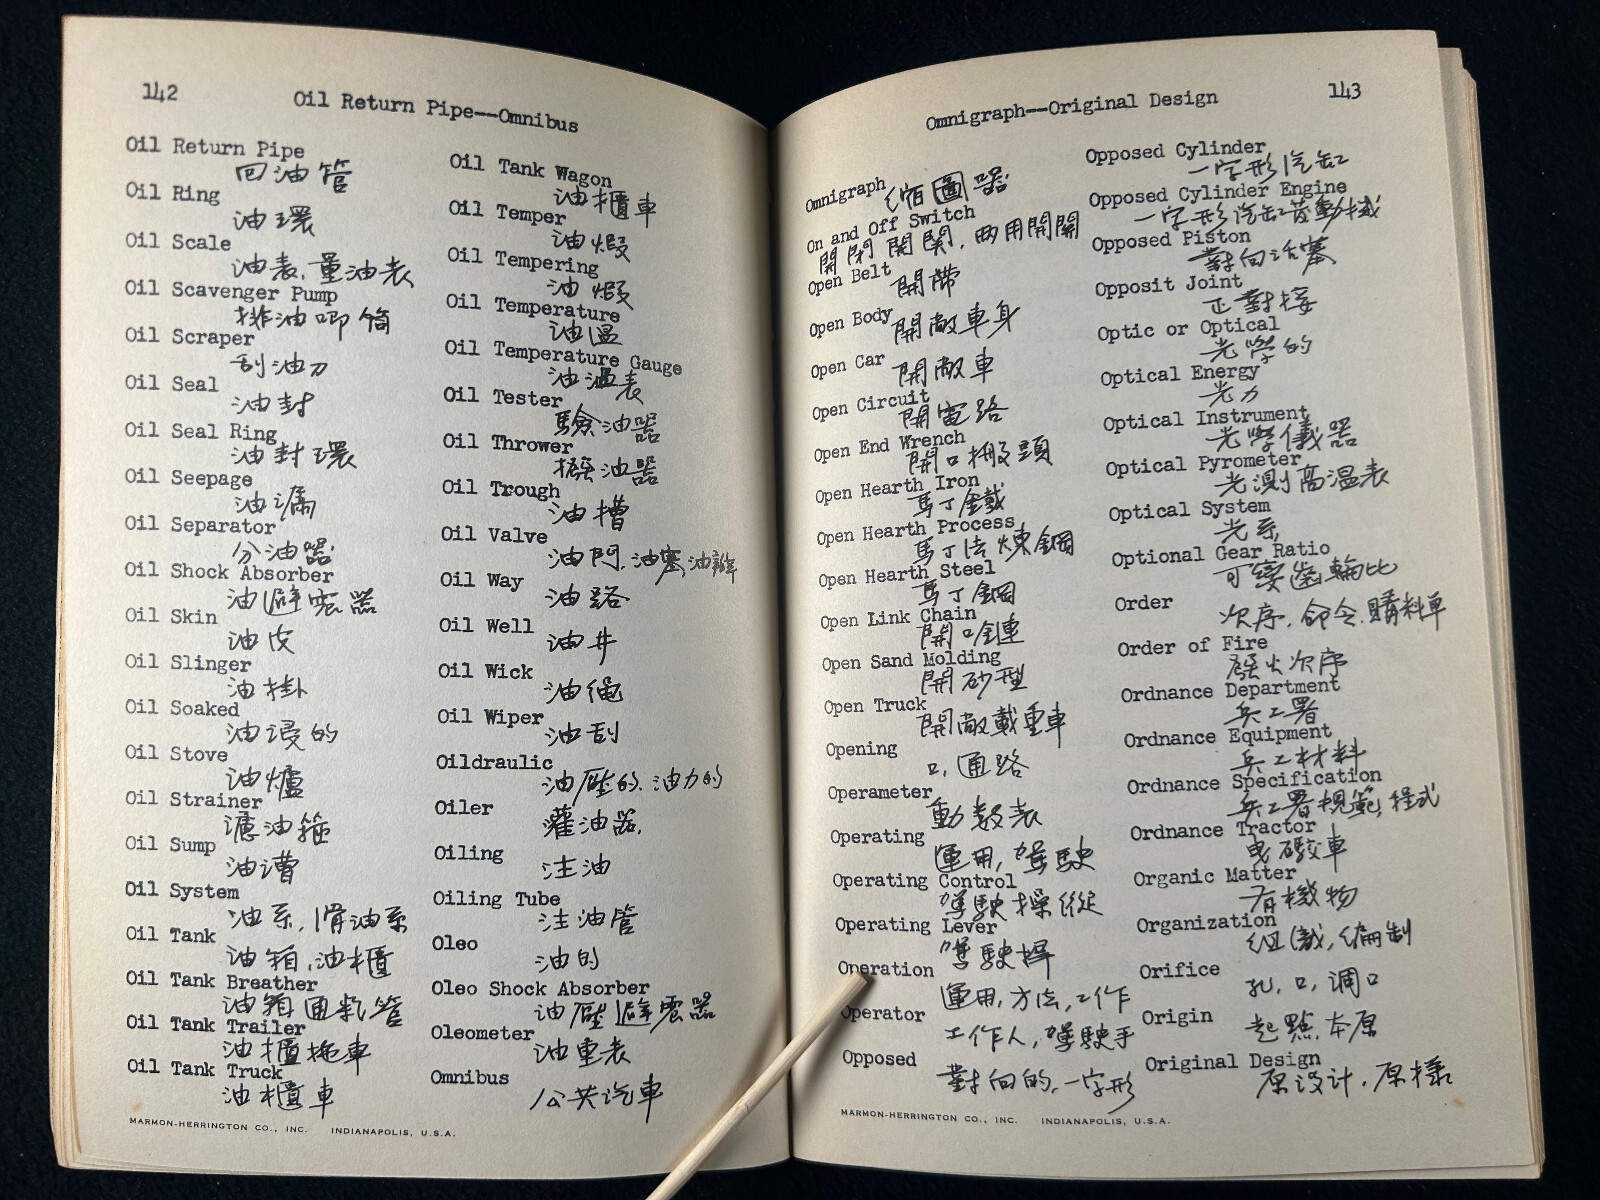 142
Oil Return Pipe--Omnibus
Oil Return Pipe
回油管
Oil Ring
油環
Oil Scale
油表,量油表
Oil Scavenger Pump
排油唧筒
Oil Scraper
刮油刀
Oil Seal
油封
Oil Seal Ring
油封環
Oil Seepage
油漏
Oil Separator
分油器
Oil Shock Absorber
油避震器
Oil Skin
油皮
Oil Slinger
油掛
Oil Soaked
油浸的
Oil Stove
油爐
Oil Strainer
濾油箍
Oil Sump
油漕
Oil System
油系,滑油系
Oil Tank
油箱,油櫃
Oil Tank Breather
油箱通氣管
Oil Tank Trailer
油櫃拖車
Oil Tank Truck
油櫃車
Oil Tank Wagon
油櫃車
Oil Temper
油煅
Oil Tempering
油煅
Oil Temperature
油溫
Oil Temperature Gauge
油溫表
Oil Tester
驗油器
Oil Thrower
撥油器
Oil Trough
油槽
Oil Valve
油門,油塞,油瓣
Oil Way
油路
Oil Well
油井
Oil Wick
油繩
Oil Wiper
油刮
Oildraulic
油壓的,油力的
Oiler
灌油器
Oiling
注油
Oiling Tube
注油管
Oleo
油的
Oleo Shock Absorber
油壓避震器
Oleometer
油重表
Omnibus
公共汽車
MARMON-HERRINGTON CO., INC. INDIANAPOLIS, U.S.A.
Omnigraph--Original Design
143
Omnigraph
縮圖器
On and Off Switch
開閉開關,兩用開關
Open Belt
開帶
Open Body
開敞車身
Open Car
開敞車
Open Circuit
開電路
Open End Wrench
開口搬頭
Open Hearth Iron
馬丁鐵
Open Hearth Process
馬丁法煉鋼
Open Hearth Steel
馬丁鋼
Open Link Chain
開口鏈
Open Sand Molding
開砂型
Open Truck
開敞載重車
Opening
口,通路
Operameter
動數表
Operating
運用,駕駛
Operating Control
駕駛操縱
Operating Lever
駕駛桿
Operation
運用,方法,工作
Operator
工作人,駕駛手
Opposed
對向的,一字形
Opposed Cylinder
一字形汽缸
Opposed Cylinder Engine
一字形汽缸發動機
Opposed Piston
對向活塞
Opposit Joint
正對接
Optic or Optical
光學的
Optical Energy
光力
Optical Instrument
光學儀器
Optical Pyrometer
光測高温表
Optical System
光系
Optional Gear Ratio
可變齒輪比
Order
次序,命令,購料單
Order of Fire
發火次序
Ordnance Department
兵工署
Ordnance Equipment
兵工材料
Ordnance Specification
兵工署規範,程式
Ordnance Tractor
曳礮車
Organic Matter
有機物
Organization
組織,編制
Orifice
孔,口,调口
Origin
起點,本原
Original Design
原设计,原樣
MARMON-HERRINGTON CO., INC. INDIANAPOLIS, U.S.A.